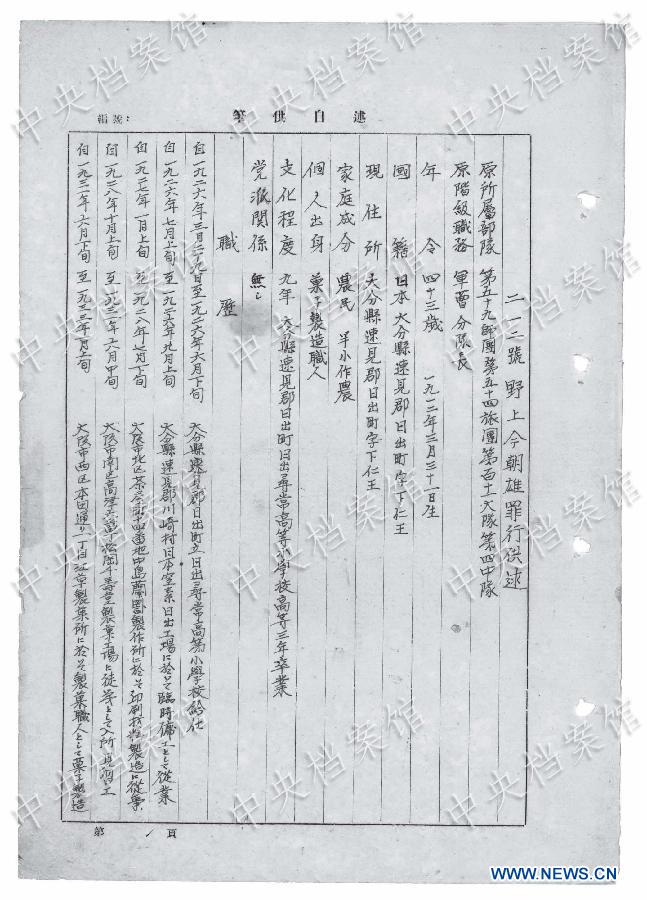 述自供筆
編號：
二一二號 野上今朝雄罪行供述
原所屬部隊 第五十九師團第五十四旅團第百十一大隊第四中隊
原階級職務 軍曹 分隊長
年令 四十三歲 一九一二年三月三十一日生
國籍 日本 大分縣速見郡日出町字下仁王
現住所 大分縣速見郡日出町字下仁王
家庭成分 農民 半小作農
個人出身 菓子製造職人
文化程度 九年 大分縣速見郡日出町日出尋常高等小學校高等三年卒業
党派関係 無し
職歴
自一九二六年三月二十九日至一九二六年六月下旬 大分縣速見郡日出町立日出尋常高等小學校給仕
自一九二六年七月上旬 至一九二六年九月上旬 大分縣速見郡川崎村日本窒素日出工場に於て臨時傭工として従業
自一九二七年一月上旬 至一九二八年七月下旬 大阪市北区茶屋町十四番地中島蘭園製作所に於て印刷 製造に従事
自一九二八年十月上旬 至一九三一年六月中旬 大阪市南区高津 松岡千壽堂製菓工場に徒弟として入所 見習工
自一九三一年六月下旬 至一九三三年一月上旬 大阪市西区本田通り一丁目 製菓所に於て製菓職人として菓子製造
第 1 頁
中央档案馆
新华网
WWW.NEWS.CN